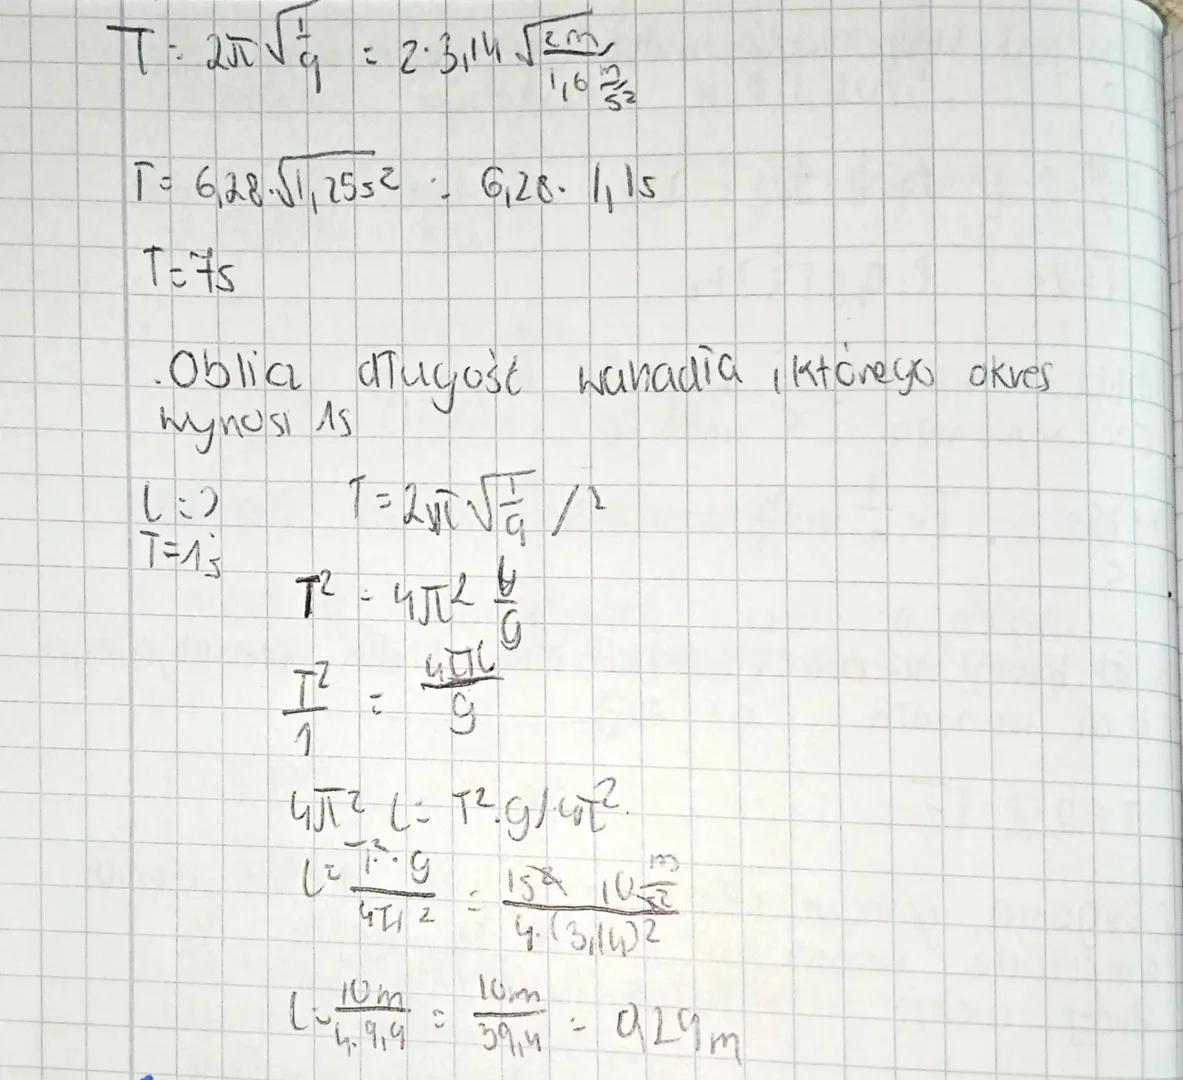 T = 2π √(l/g) = 2·3,14 √(2m / 1,6 m/s²)
T = 6,28·√1,25s² = 6,28· 1,1s
T=7s
.Oblicz długość wahadła, którego okres
wynosi 1s
l=?
T = 2π √(l/g) /²
T=1s
T² = 4π² l/g
T²/1 = 4πl/g
4π² l = T²·g/4π².
l = T²·g / 4π² = 1s² 10 m/s² / 4·(3,14)²
l = 10m / 4·9,9 = 10m / 39,4 = 0,29m